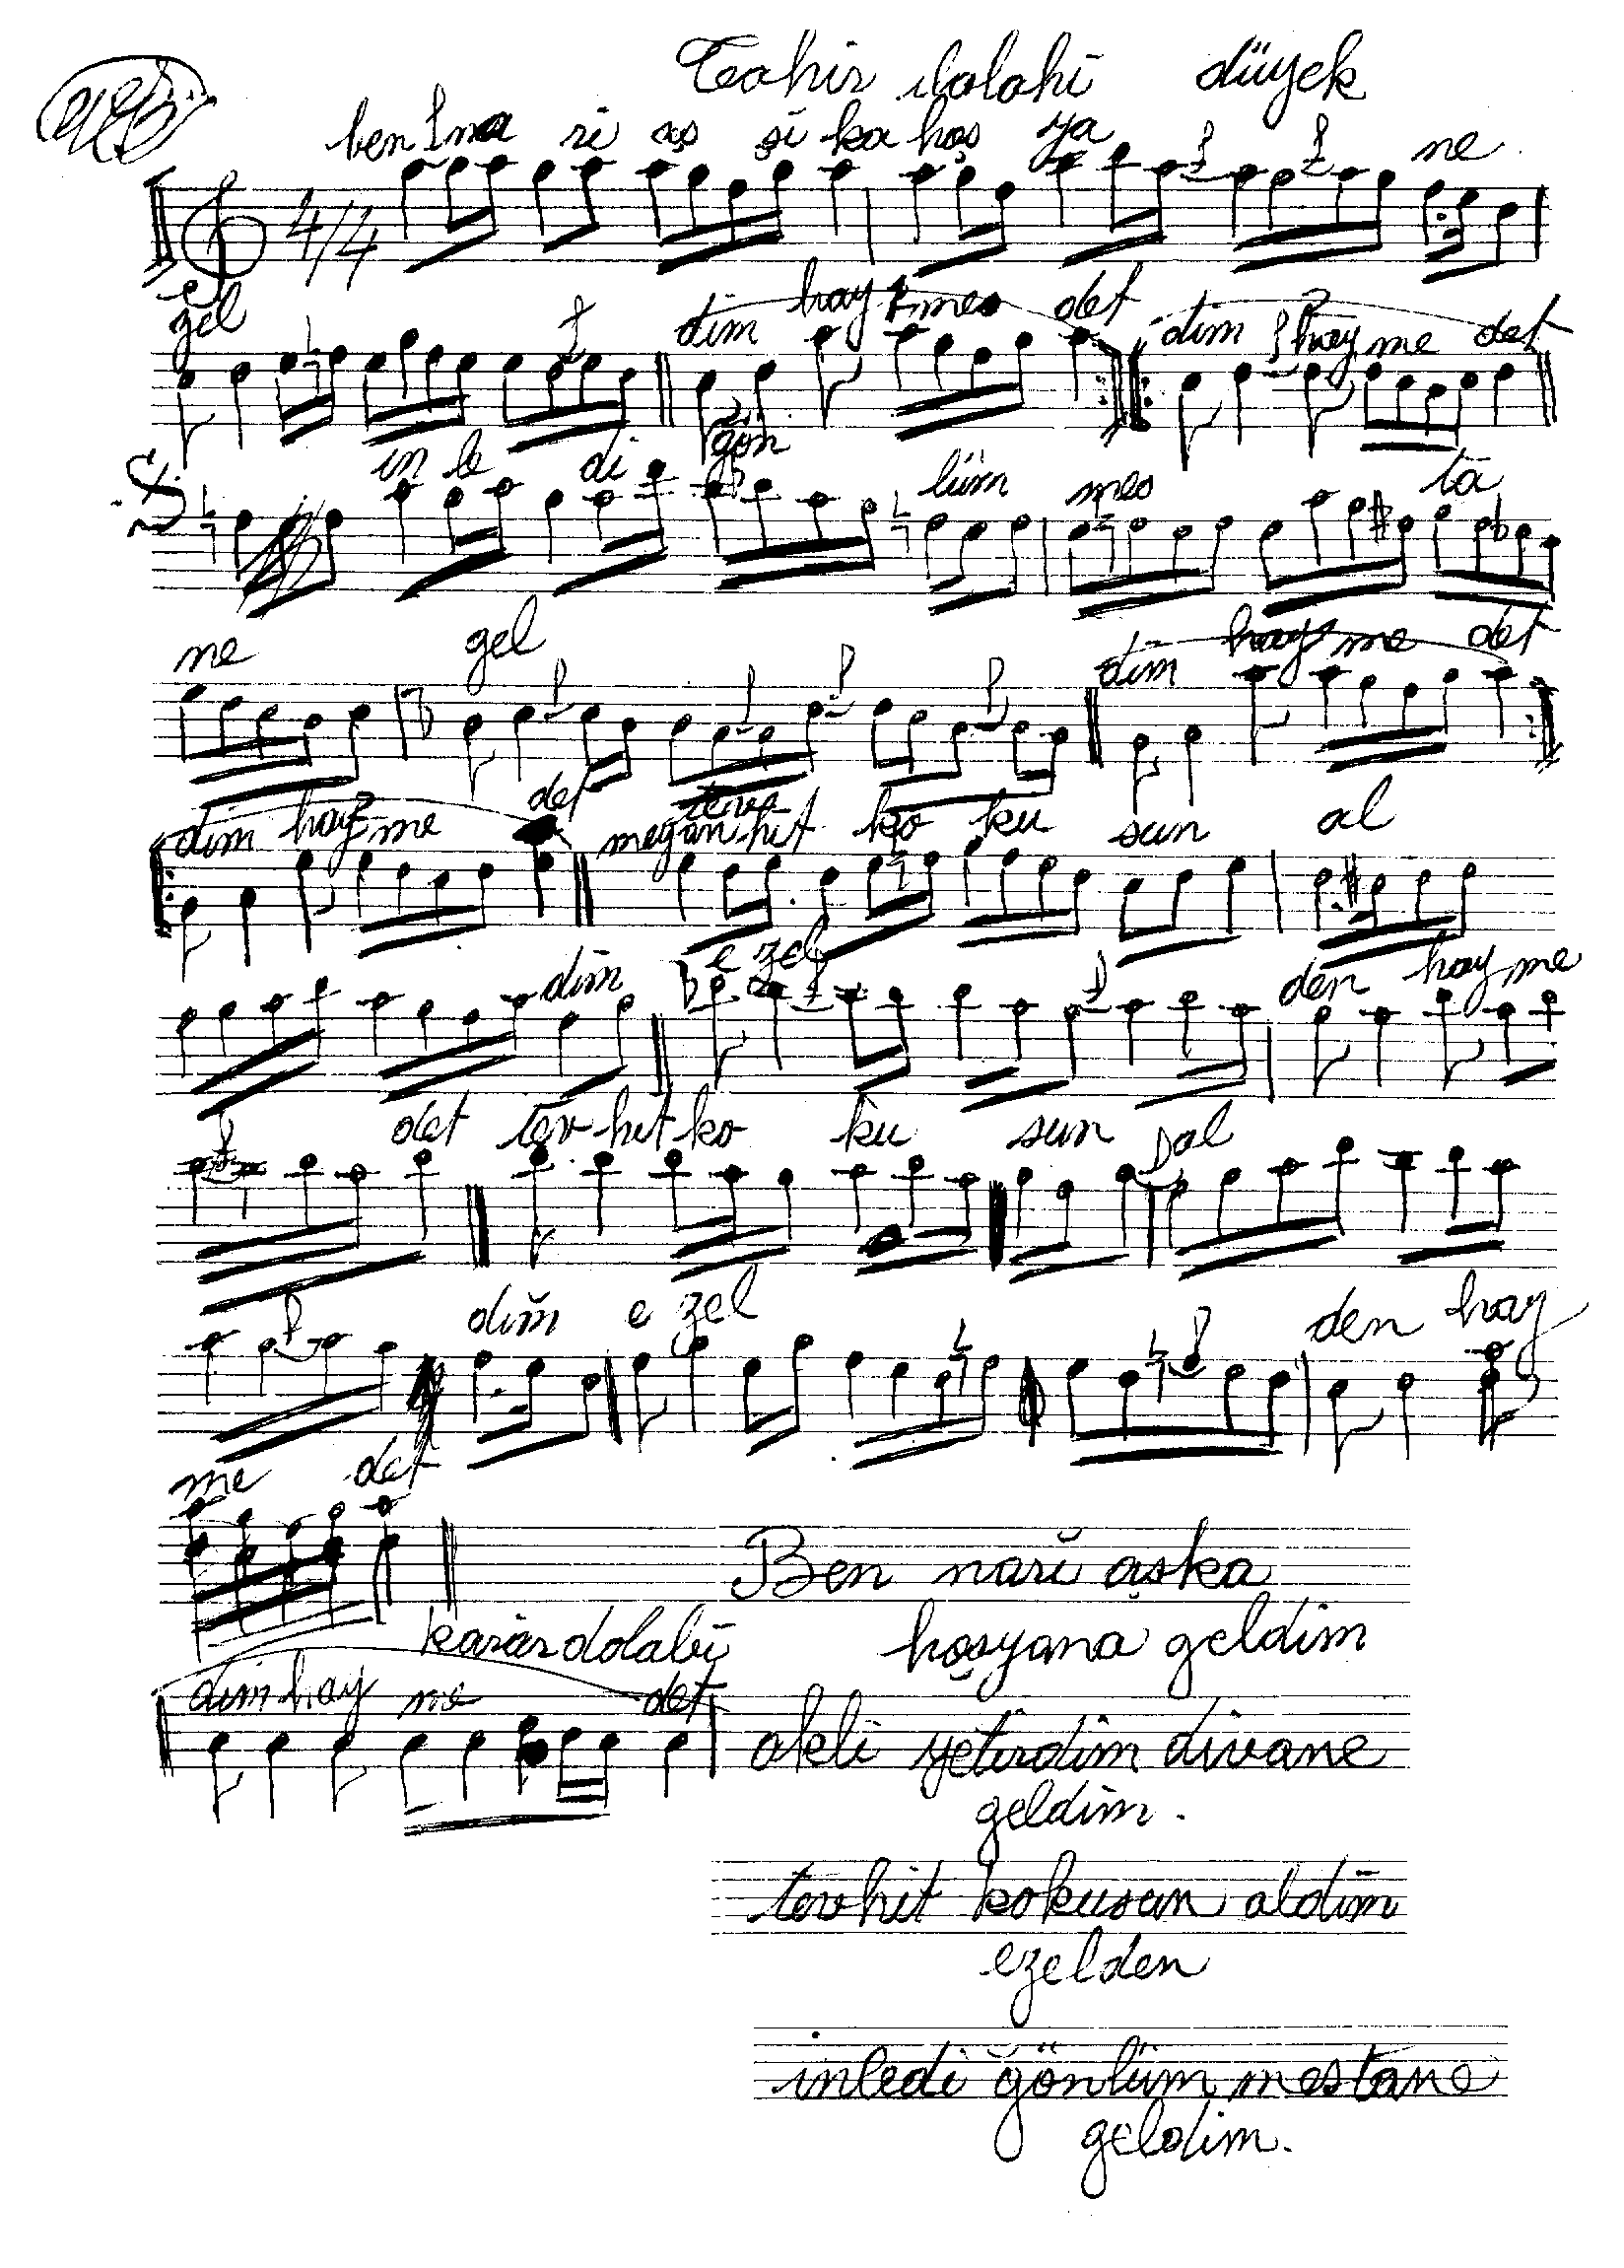 Tahir ilalahi düyek
ben na ri aş şi ka hoş ya ne
4/4
gel dim hay me det dim hay me det
in le di gön lüm mes ta
ne gel dim hay me det
dim hay me det meyan tev hit ko ku sun al
dim e zel den hay me
det tev hit ko ku sun al
dim e zel den hay
me det
Ben nari aşka
karar dolabi hoşyana geldim
dim hay me det akli yetirdim divane
geldim.
tevhit kokusun aldim
ezelden
inledi gönlüm mestane
geldim.